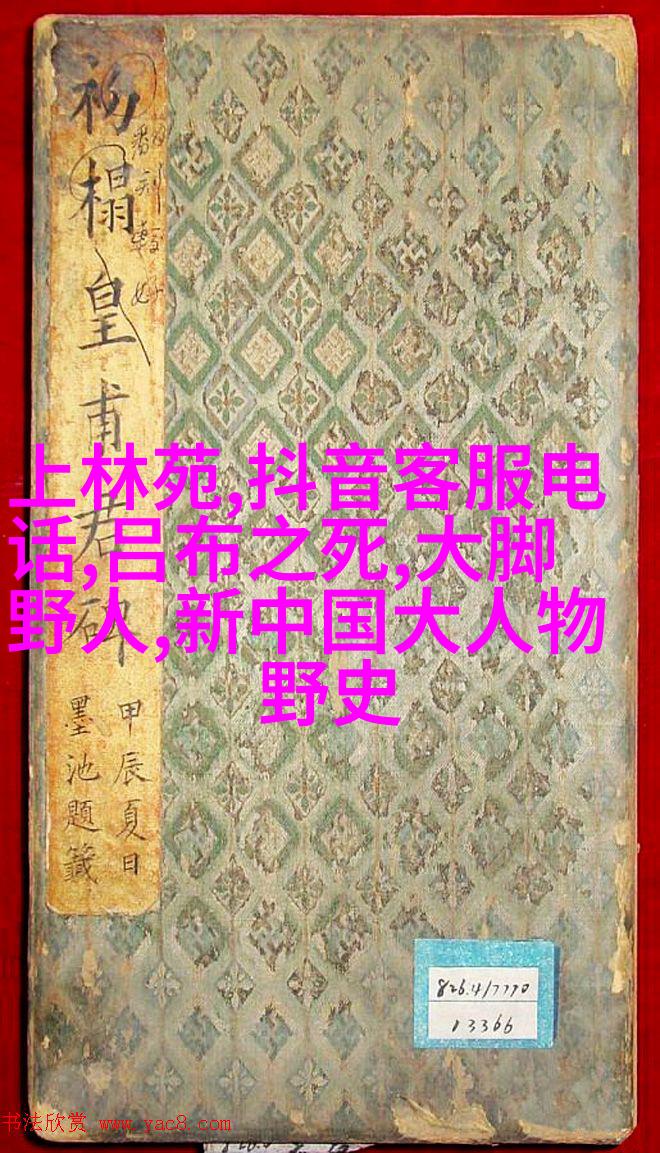 初榻皇甫君碑
甲辰夏日
墨池題籤
上林苑,抖音客服电
话,吕布之死,大脚
野人,新中国大人物
野史
826.4/7770
13366
书法欣赏 www.yac8.com